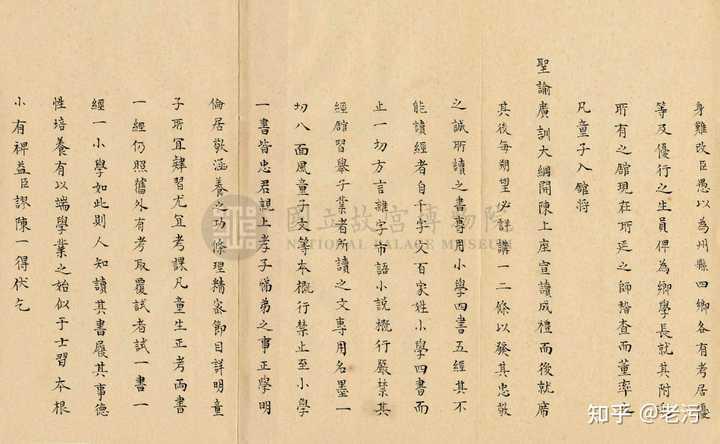 身難改臣愚以為州縣四鄉各有考居優
等及優行之生員俾為鄉學長就其附近
所有之館現在所延之師稽查而董率之
凡童子入館將
聖諭廣訓大綱開陳上座宣讀成禮而後就席
其後每朔望必詳講一二條以發其忠敬
之誠所讀之書專用小學四書五經其不
能讀經者自千字文百家姓小學四書而
止一切方言雜字市語小說概行嚴禁其
經館習舉子業者所讀之文專用名墨一
切八面風童子文等本概行禁止至小學
一書皆忠君親上孝子悌弟之事正學明
倫居敬涵養之功條理精密節目詳明童
子所宜肄習尤宜考課凡童生正考兩書
一經仍照舊外有考取覆試者試一書一
經一小學如此則人知讀其書履其事德
性培養有以端學業之始似于士習本根
小有裨益臣謬陳一得伏乞
國立故宮博物院
NATIONAL PALACE MUSEUM
知乎 @老污